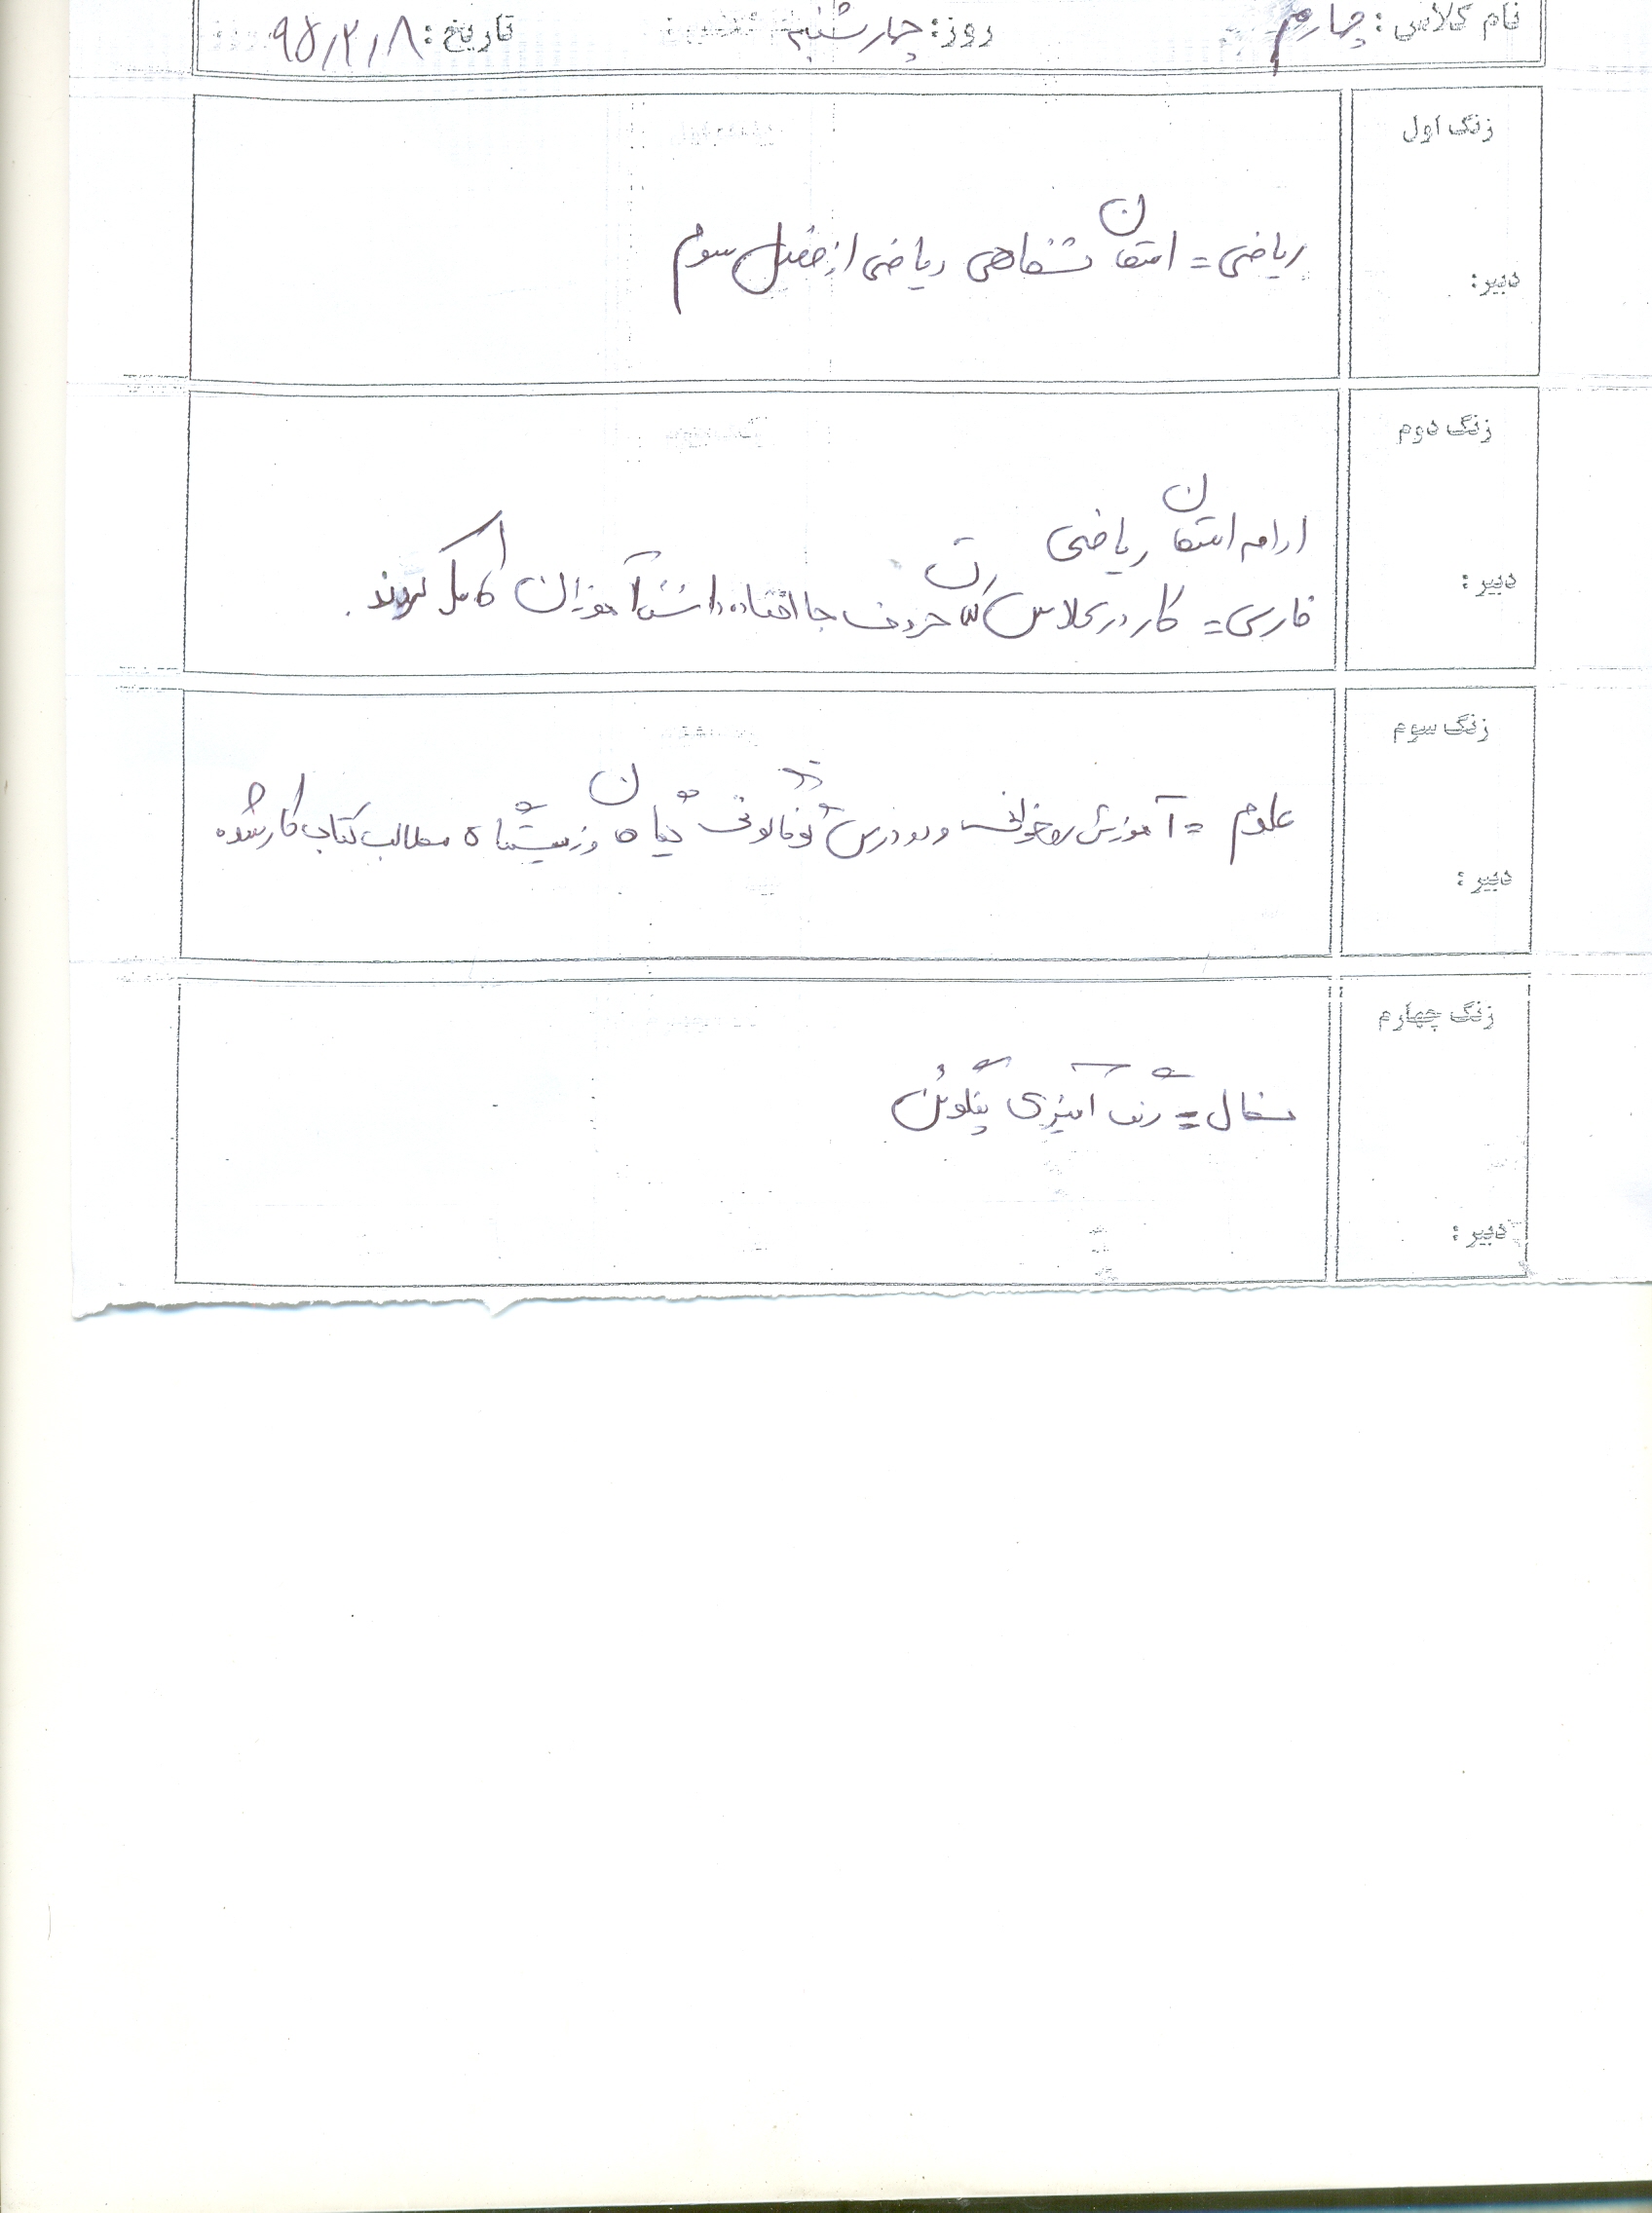 نام کلاس: چهارم روز: چهارشنبه تاریخ: ۹۵/۲/۸
زنگ اول
ریاضی = امتحان شفاهی ریاضی از فصل سوم
دبیر:
زنگ دوم
ادامه امتحان ریاضی
فارسی = کار در کلاس حروف جا افتاده دانش آموزان کامل کردند.
دبیر:
زنگ سوم
علوم = آموزش روخوانی و درس گوناگونی گیاهان و زیستگاه مطالب کتاب کار شده
دبیر:
زنگ چهارم
سفال = رنگ آمیزی پنگوئن
دبیر: